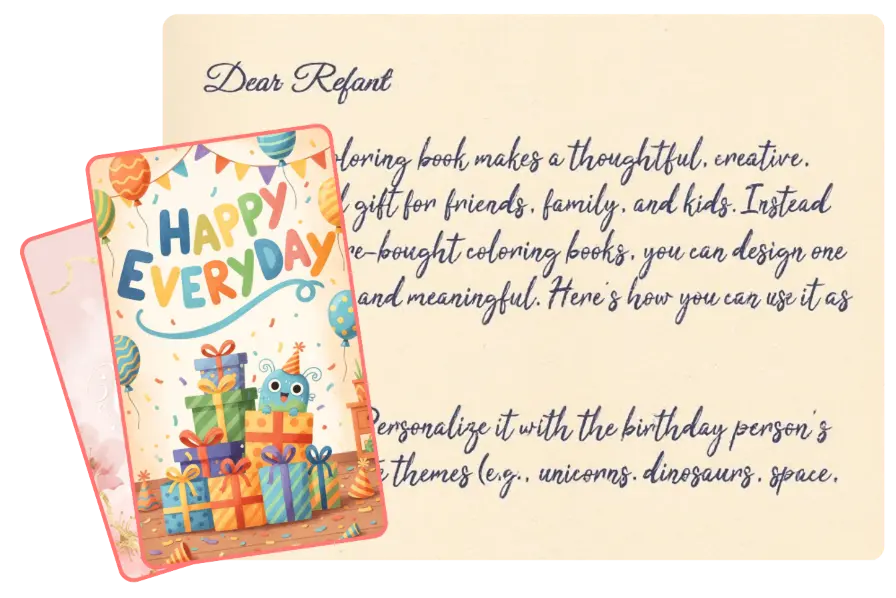 Dear Refant
coloring book makes a thoughtful, creative,
gift for friends, family, and kids. Instead
bought coloring books, you can design one
and meaningful. Here's how you can use it as
Personalize it with the birthday person's
themes (e.g., unicorns, dinosaurs, space,
HAPPY
EVERYDAY